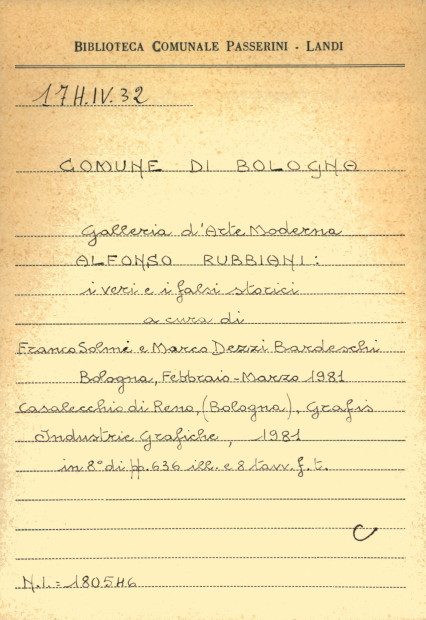 BIBLIOTECA COMUNALE PASSERINI - LANDI
17H.IV.32
COMUNE DI BOLOGNA
Galleria d'Arte Moderna
ALFONSO RUBBIANI:
i veri e i falsi storici
a cura di
Franco Solmi e Marco Dezzi Bardeschi
Bologna, Febbraio-Marzo 1981
Casalecchio di Reno, (Bologna), Grafis
Industrie Grafiche, 1981
in 8° di pp. 636 ill. e 8 tavv. f. t.
C
N.I.=180546